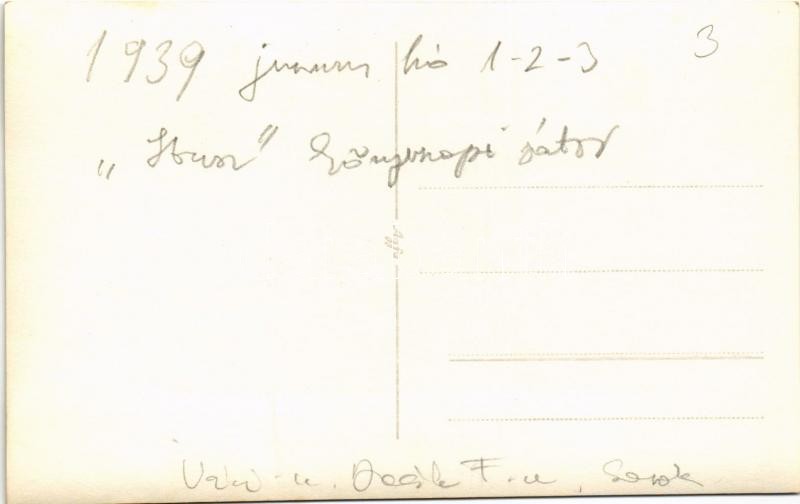 1939 junius hó 1-2-3
3
„ " Könyvnapi sátor
Agfa
Váci-u. Deák F.-u. sarok